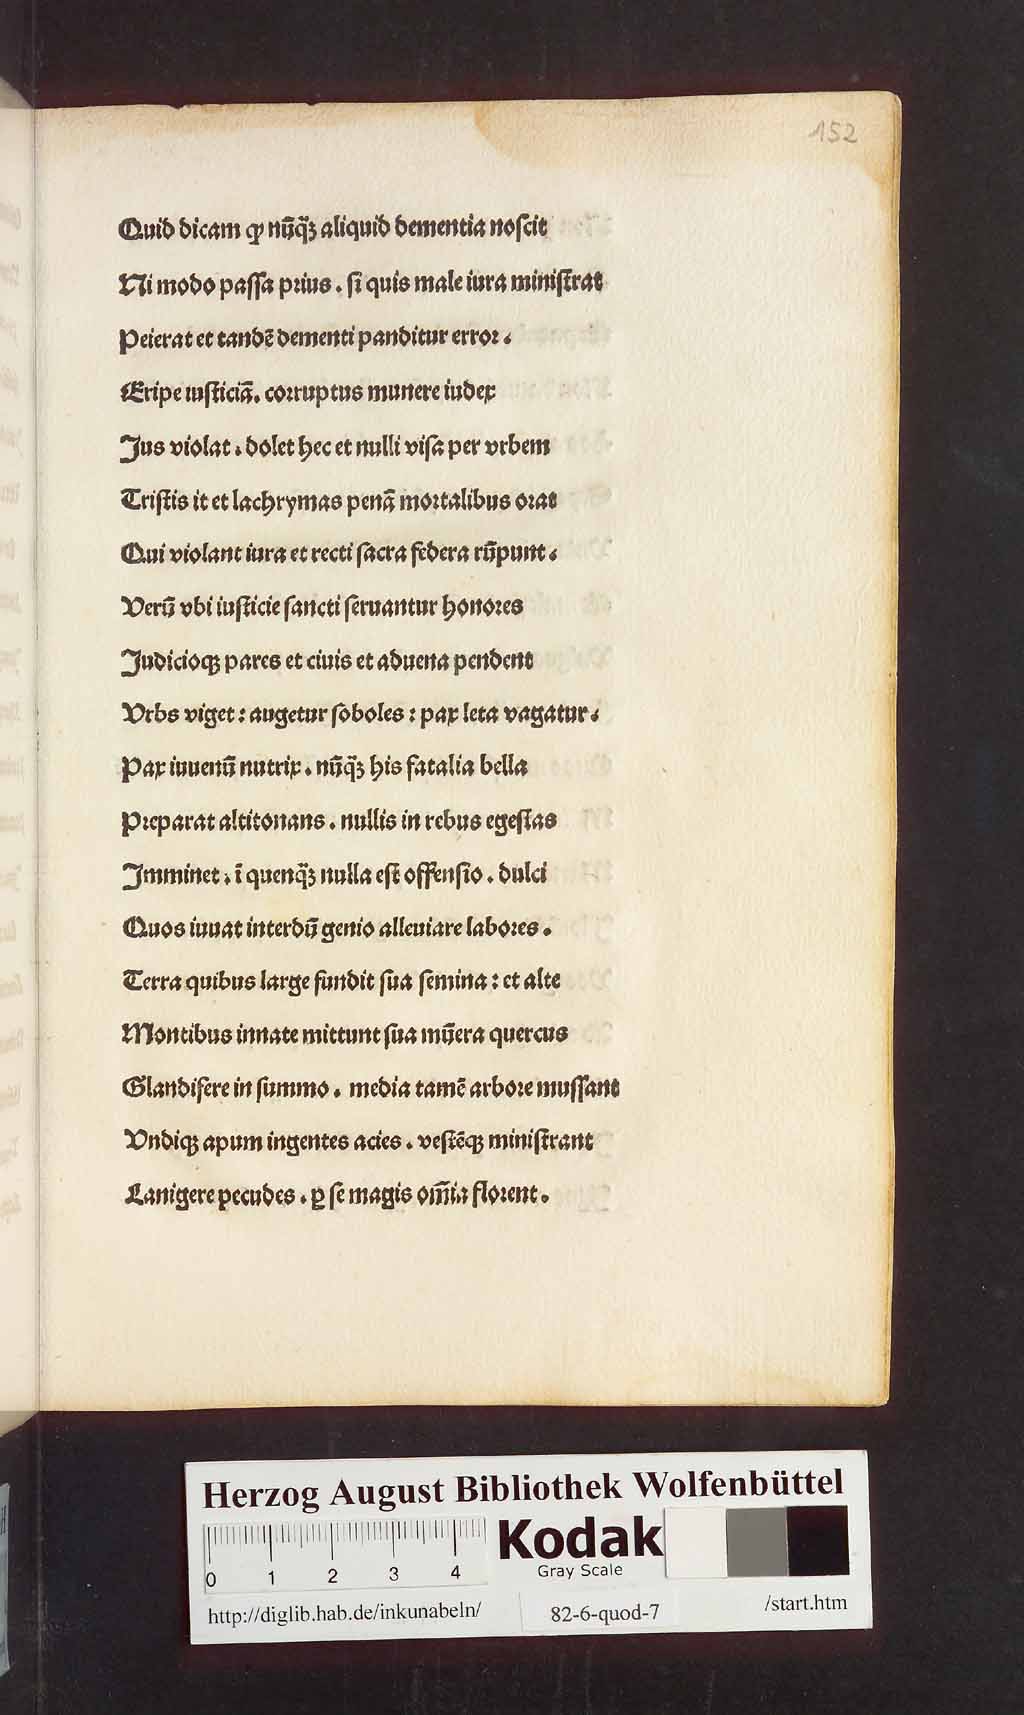 152
Quid dicam ꝙ nūq̄ꝫ aliquid dementia noſcit
Ni modo paſſa prius . ſi quis male iura miniſtrat
Peierat et tandē dementi panditur error .
Eripe iuſticiā. corruptus munere iudex
Jus violat . dolet hec et nulli viſa per vrbem
Triſtis it et lachrymas penā mortalibus orat
Qui violant iura et recti ſacra federa rūpunt .
Verū vbi iuſticie ſancti ſeruantur honores
Judicioqꝫ pares et ciuis et aduena pendent
Vrbs viget : augetur ſoboles : pax leta vagatur .
Pax iuuenū nutrix . nūq̄ꝫ his fatalia bella
Preparat altitonans . nullis in rebus egeſtas
Imminet . ī quenq̄ꝫ nulla eſt offenſio . dulci
Quos iuuat interdū genio alleuiare labores .
Terra quibus large fundit ſua ſemina : et alte
Montibus innate mittunt ſua mūera quercus
Glandifere in ſummo . media tamē arbore muſſant
Vndiqꝫ apum ingentes acies . veſtēqꝫ miniſtrant
Lanigere pecudes . ꝑ ſe magis om̄ia florent .
Herzog August Bibliothek Wolfenbüttel
Kodak
Gray Scale
0 1 2 3 4
http://diglib.hab.de/inkunabeln/ 82-6-quod-7 /start.htm